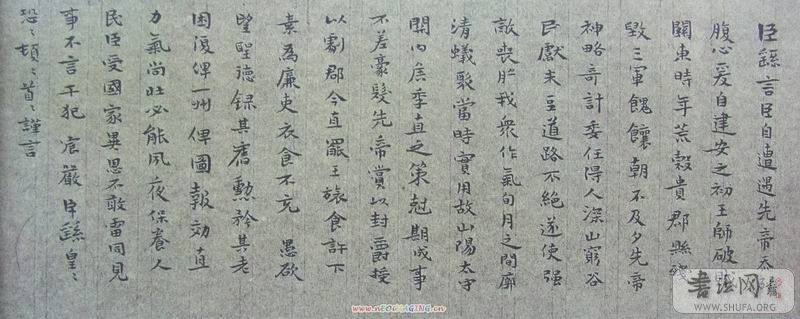 臣繇言臣自遭遇先帝忝
腹心爰自建安之初王師破
關東時年荒穀貴郡縣殘
毀三軍餽饟朝不及夕先帝
神略奇計委任得人深山窮谷
民獻米豆道路不絕遂使强
敵喪膽我眾作氣旬月之間廓
清蟻聚當時實用故山陽太守
關內侯季直之策尅期成事
不差豪髮先帝賞以封爵授
以劇郡今直罷任旅食許下
素為廉吏衣食不充 愚欲
望聖德錄其舊勳矜其老
困復俾一州俾圖報効直
力氣尚壯必能夙夜保養人
民臣受國家異恩不敢雷同見
事不言干犯宸嚴臣繇皇〻
恐〻頓〻首〻謹言
www.NEOIMAGING.cn
书法网
WWW.SHUFA.ORG